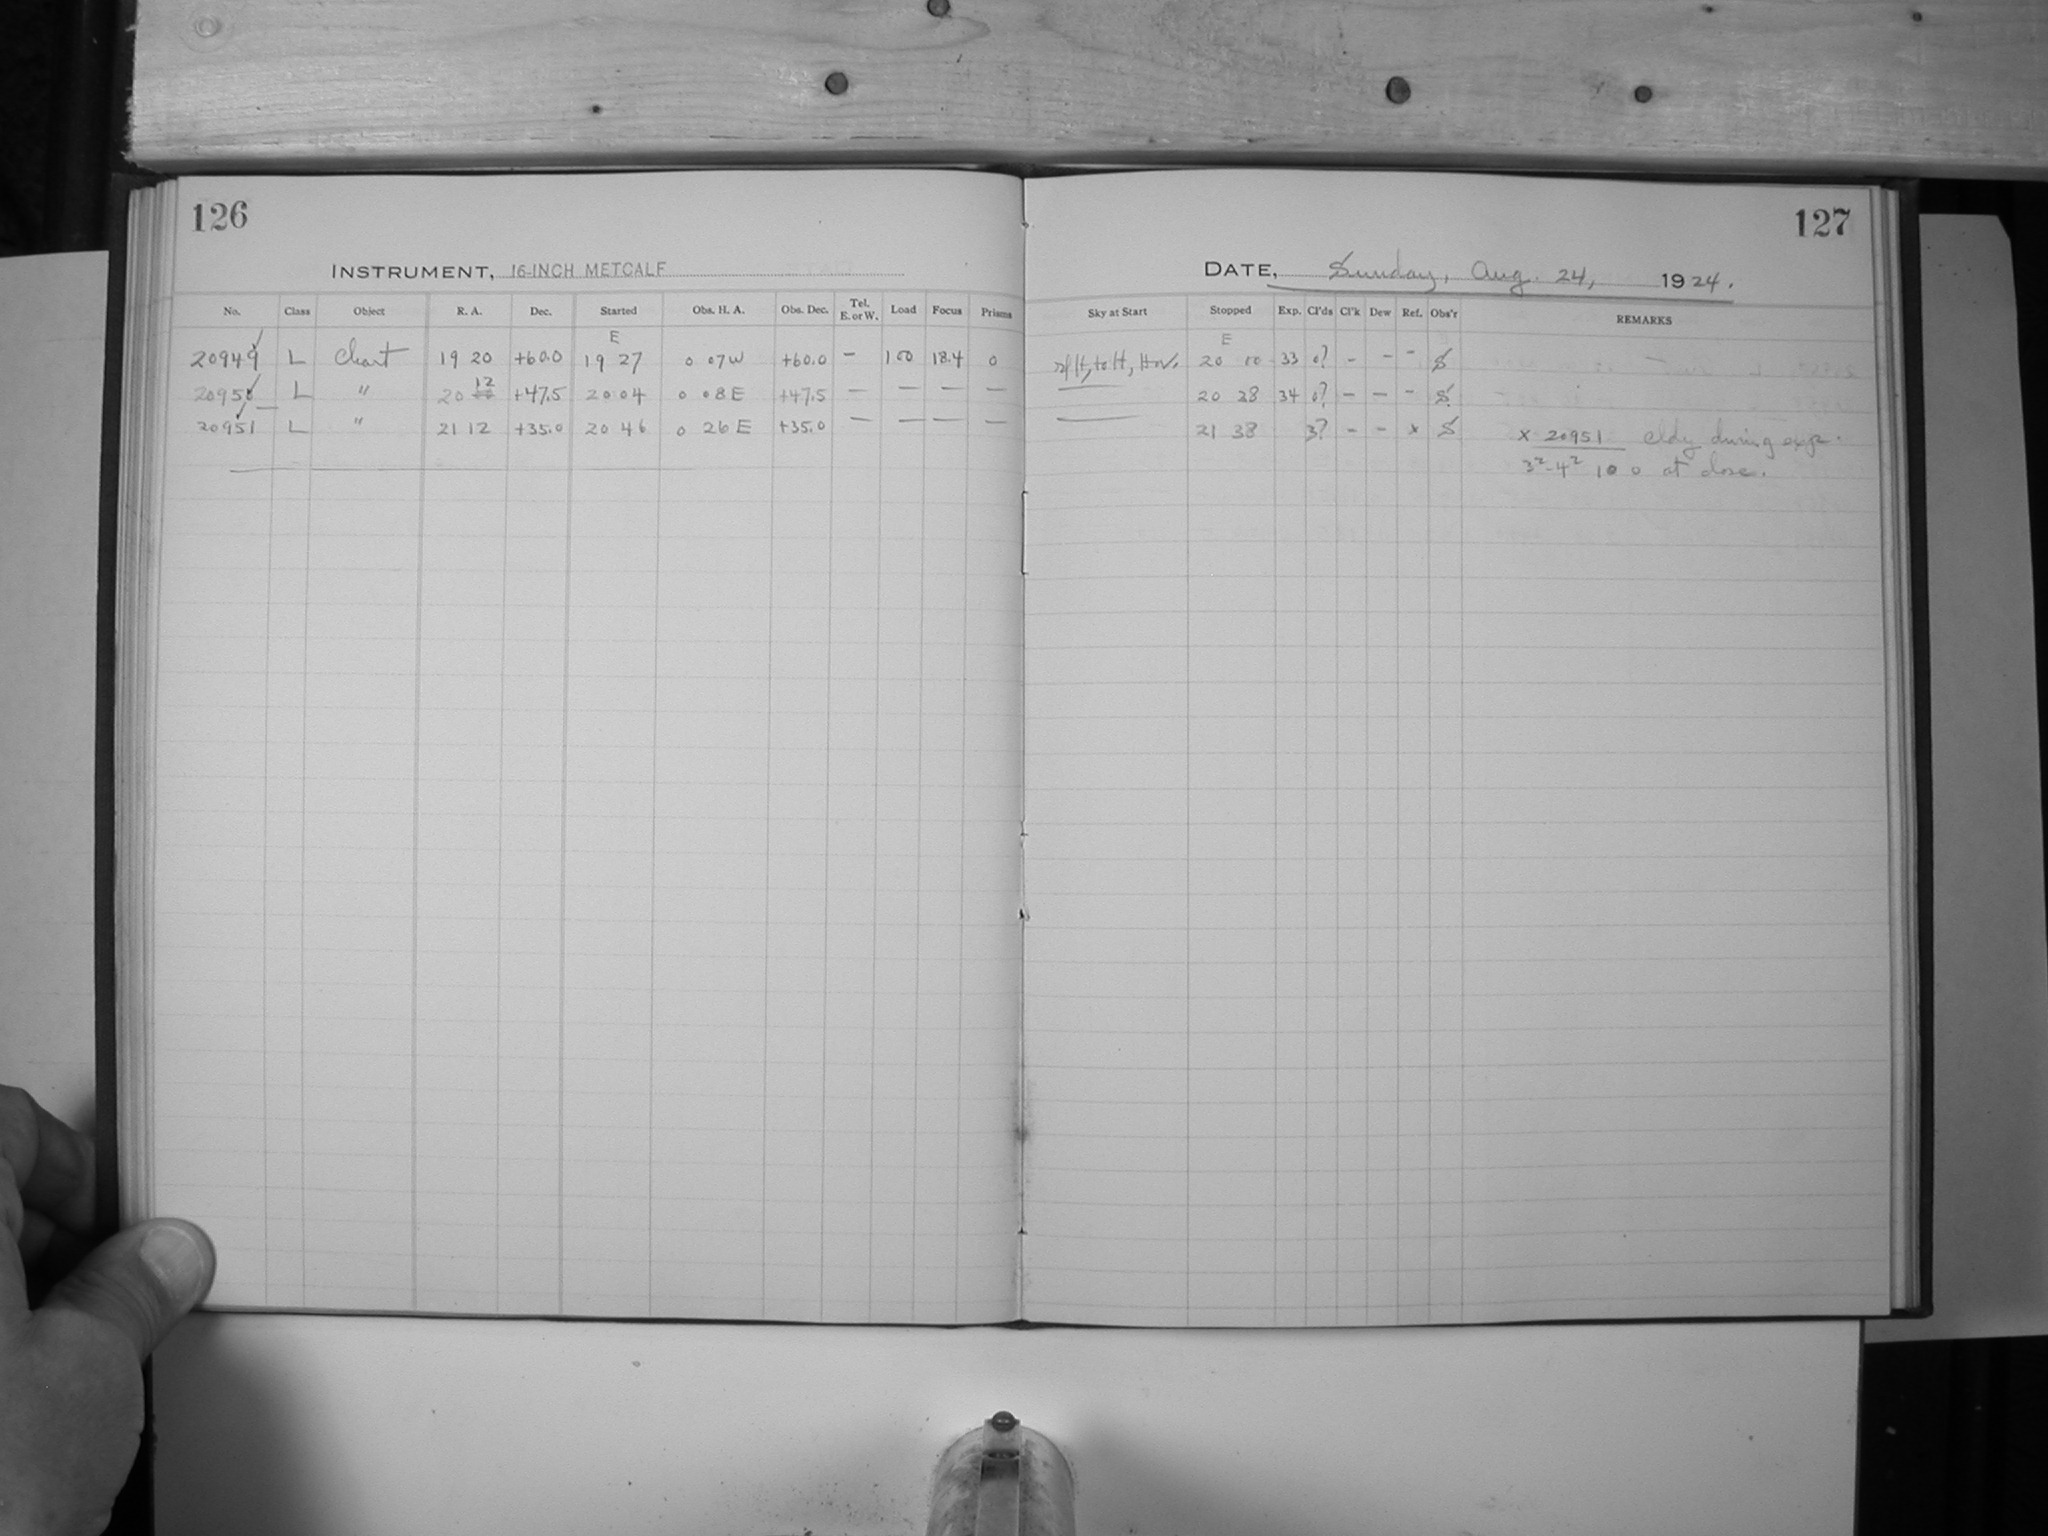 126
127
INSTRUMENT, 16-INCH METCALF
DATE, Sunday, Aug. 24, 1924.
No. Class Object R. A. Dec. Started Obs. H. A. Obs. Dec. Tel. E. or W. Load Focus Prisms Sky at Start Stopped Exp. Cl'ds Cl'k Dew Ref. Obs'r REMARKS
E E
20949 L Chart 19 20 +60.0 19 27 0 07W +60.0 — 100 18.4 0 20 10 33 0? - - - S
20950 L " 20 12 +47.5 20 04 0 08E +47.5 — — — — — 20 38 34 0? - - - S
20951 L " 21 12 +35.0 20 46 0 26E +35.0 — — — — — 21 38 3? - - x S x 20951 cldy during exp.
at close.